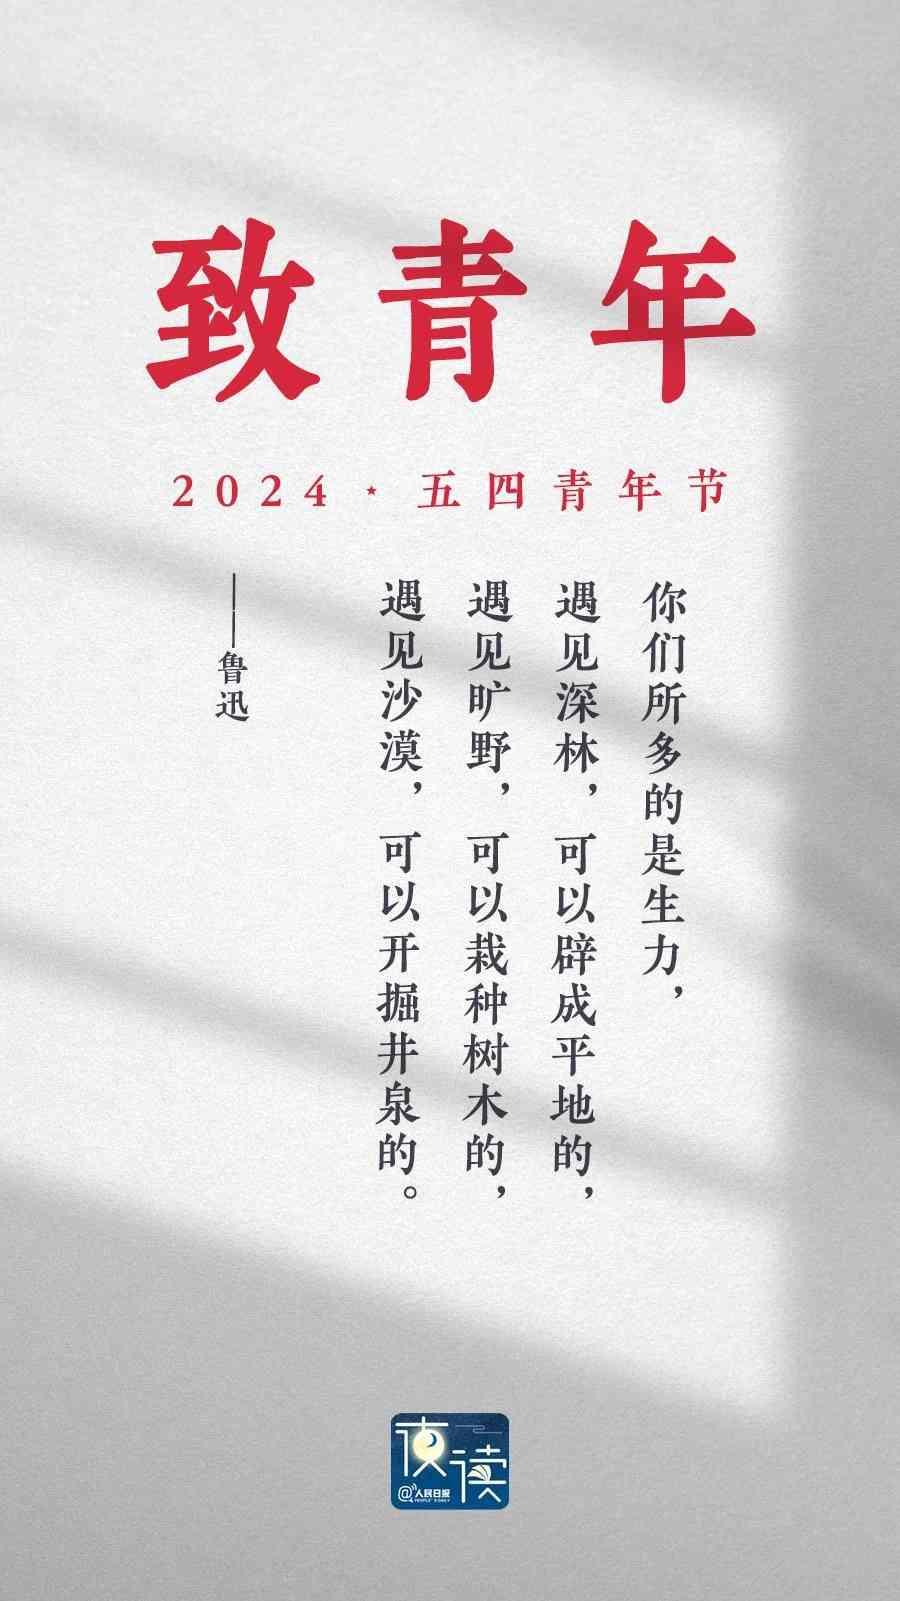 致青年
2024·五四青年节
你们所多的是生力，
遇见深林，可以辟成平地的，
遇见旷野，可以栽种树木的，
遇见沙漠，可以开掘井泉的。
——鲁迅
夜读
@人民日报
PEOPLE'S DAILY